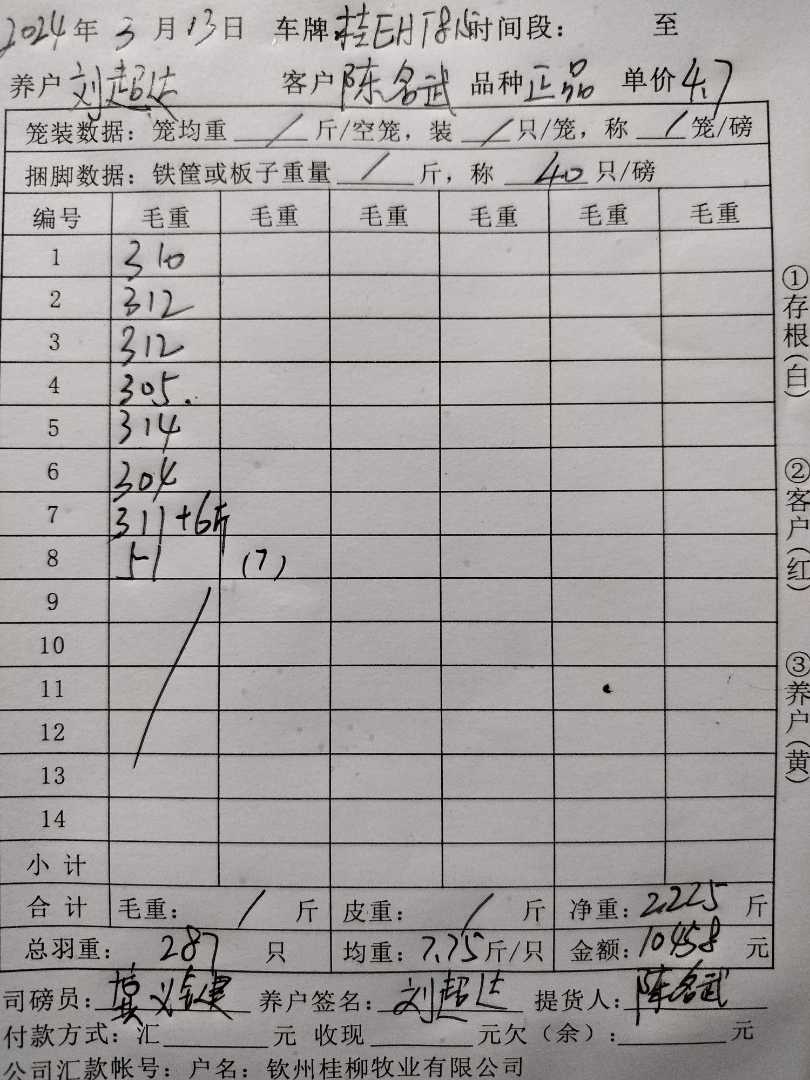 2024年3月13日 车牌桂EHT816时间段: 至
养户刘超达 客户陈名武 品种正品 单价4.7
笼装数据: 笼均重 / 斤/空笼, 装 / 只/笼, 称 / 笼/磅
捆脚数据: 铁筐或板子重量 / 斤, 称 40 只/磅
编号 毛重 毛重 毛重 毛重 毛重 毛重
1 310
2 312
3 312
4 305.
5 314
6 304
7 311+6斤
8 51 (7)
9
10
11
12
13
14
小计
合计 毛重: / 斤 皮重: / 斤 净重: 2225 斤
总羽重: 287 只 均重: 7.75斤/只 金额: 10458 元
司磅员: 养户签名: 刘超达 提货人: 陈名武
付款方式: 汇 元 收现 元欠(余): 元
公司汇款帐号: 户名: 钦州桂柳牧业有限公司
①存根(白)
②客户(红)
③养户(黄)